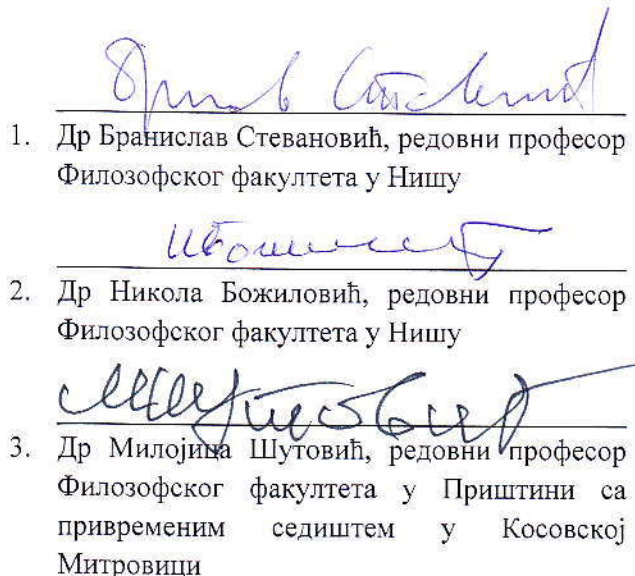 1. Др Бранислав Стевановић, редовни професор
Филозофског факултета у Нишу
2. Др Никола Божиловић, редовни професор
Филозофског факултета у Нишу
3. Др Милојица Шутовић, редовни професор
Филозофског факултета у Приштини са
привременим седиштем у Косовској
Митровици